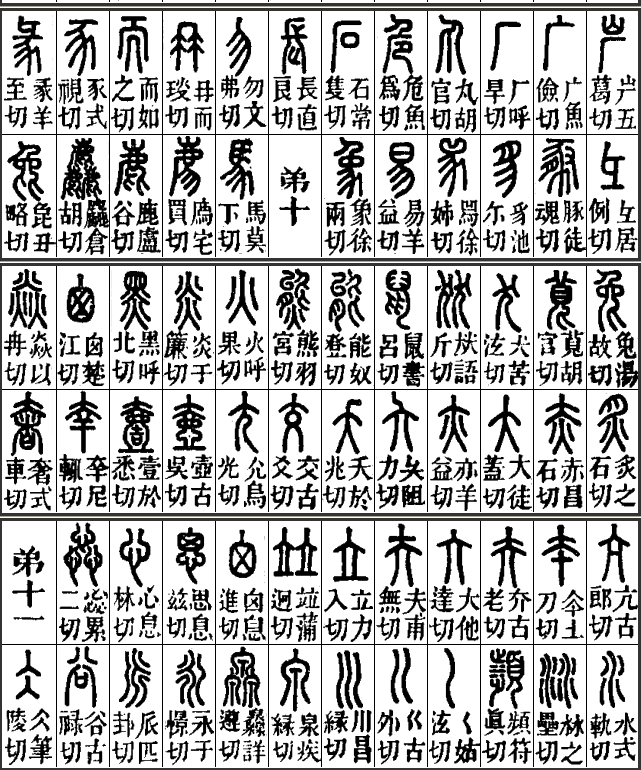 屵五葛切
广魚儉切
厂呼旱切
丸胡官切
危魚爲切
石常隻切
長直良切
勿文弗切
冄而琰切
而如之切
豕式視切
㣇羊至切
彑居例切
豚徒魂切
豸池尒切
𤉡徐姊切
易羊益切
象徐兩切
弟十
馬莫下切
廌宅買切
鹿盧谷切
麤倉胡切
㲋丑略切
兔湯故切
萈胡官切
犬苦泫切
㹜語斤切
鼠書呂切
能奴登切
熊羽宮切
火呼果切
炎于簾切
黑呼北切
囪楚江切
焱以冄切
炙之石切
赤昌石切
大徒蓋切
亦羊益切
夨阻力切
夭於兆切
交古爻切
尢烏光切
壺古吳切
壹於悉切
㚔尼輒切
奢式車切
亢古郎切
夲土刀切
夰古老切
大他達切
夫甫無切
立力入切
竝蒲迥切
囟息進切
思息茲切
心息林切
惢累二切
弟十一
水式軌切
沝之壘切
頻符眞切
𡿨姑泫切
巜古外切
川昌緣切
泉疾緣切
灥詳遵切
永于憬切
𠂢匹卦切
谷古祿切
仌筆陵切